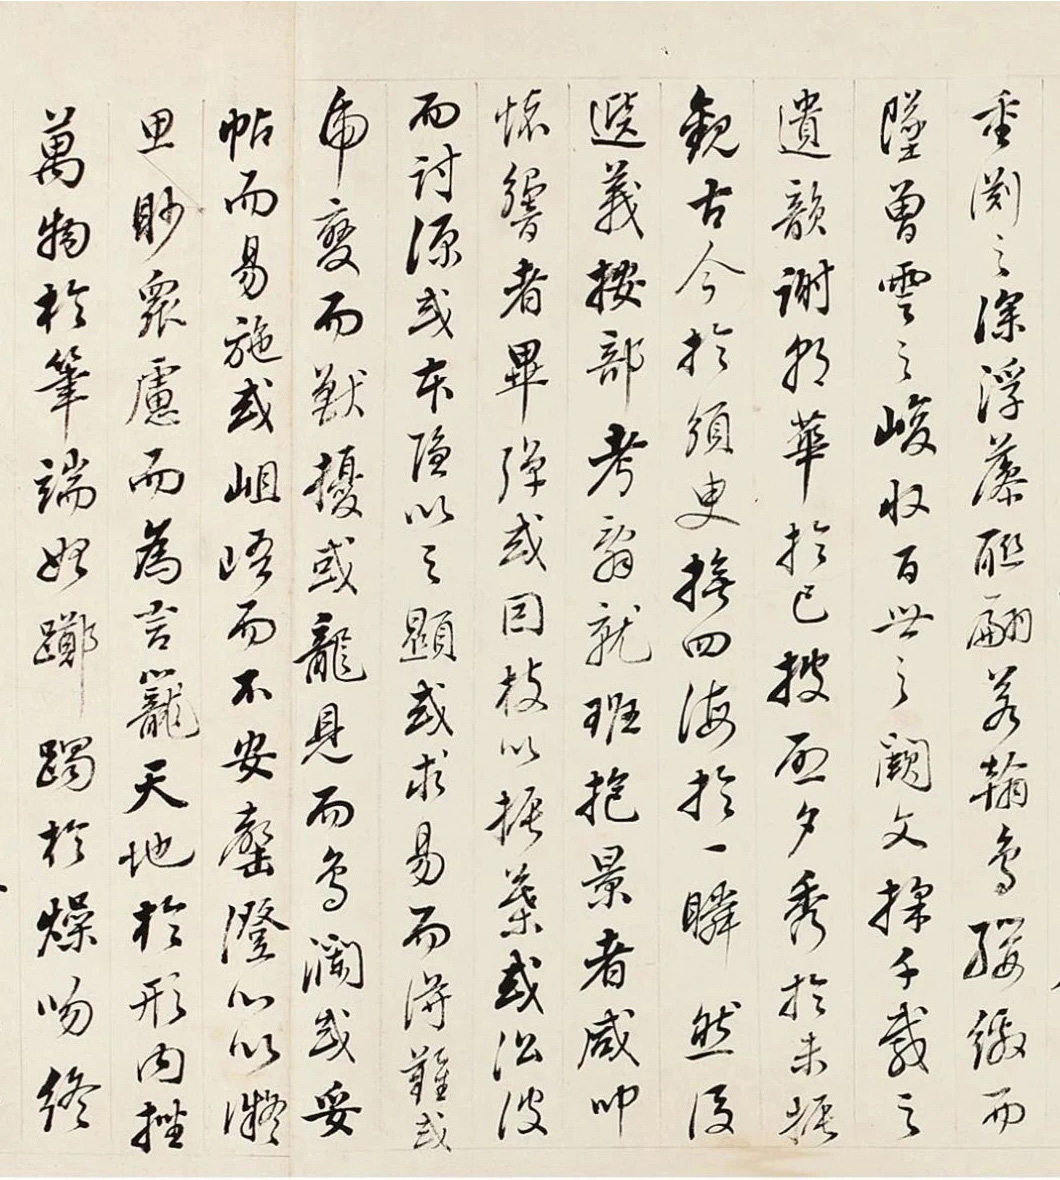 重渕之深浮藻聯翩若翰鳥纓繳而
墜曾雲之峻收百世之闕文採千載之
遺韻謝朝華於已披啟夕秀於未振
觀古今於須臾撫四海於一瞬然後
選義按部考辭就班抱景者咸叩
懷響者畢彈或因枝以振葉或沿波
而討源或本隱以之顯或求易而得難或
虎變而獸擾或龍見而鳥瀾或妥
帖而易施或岨峿而不安罄澄心以凝
思眇衆慮而為言籠天地於形內挫
萬物於筆端始躑躅於燥吻終